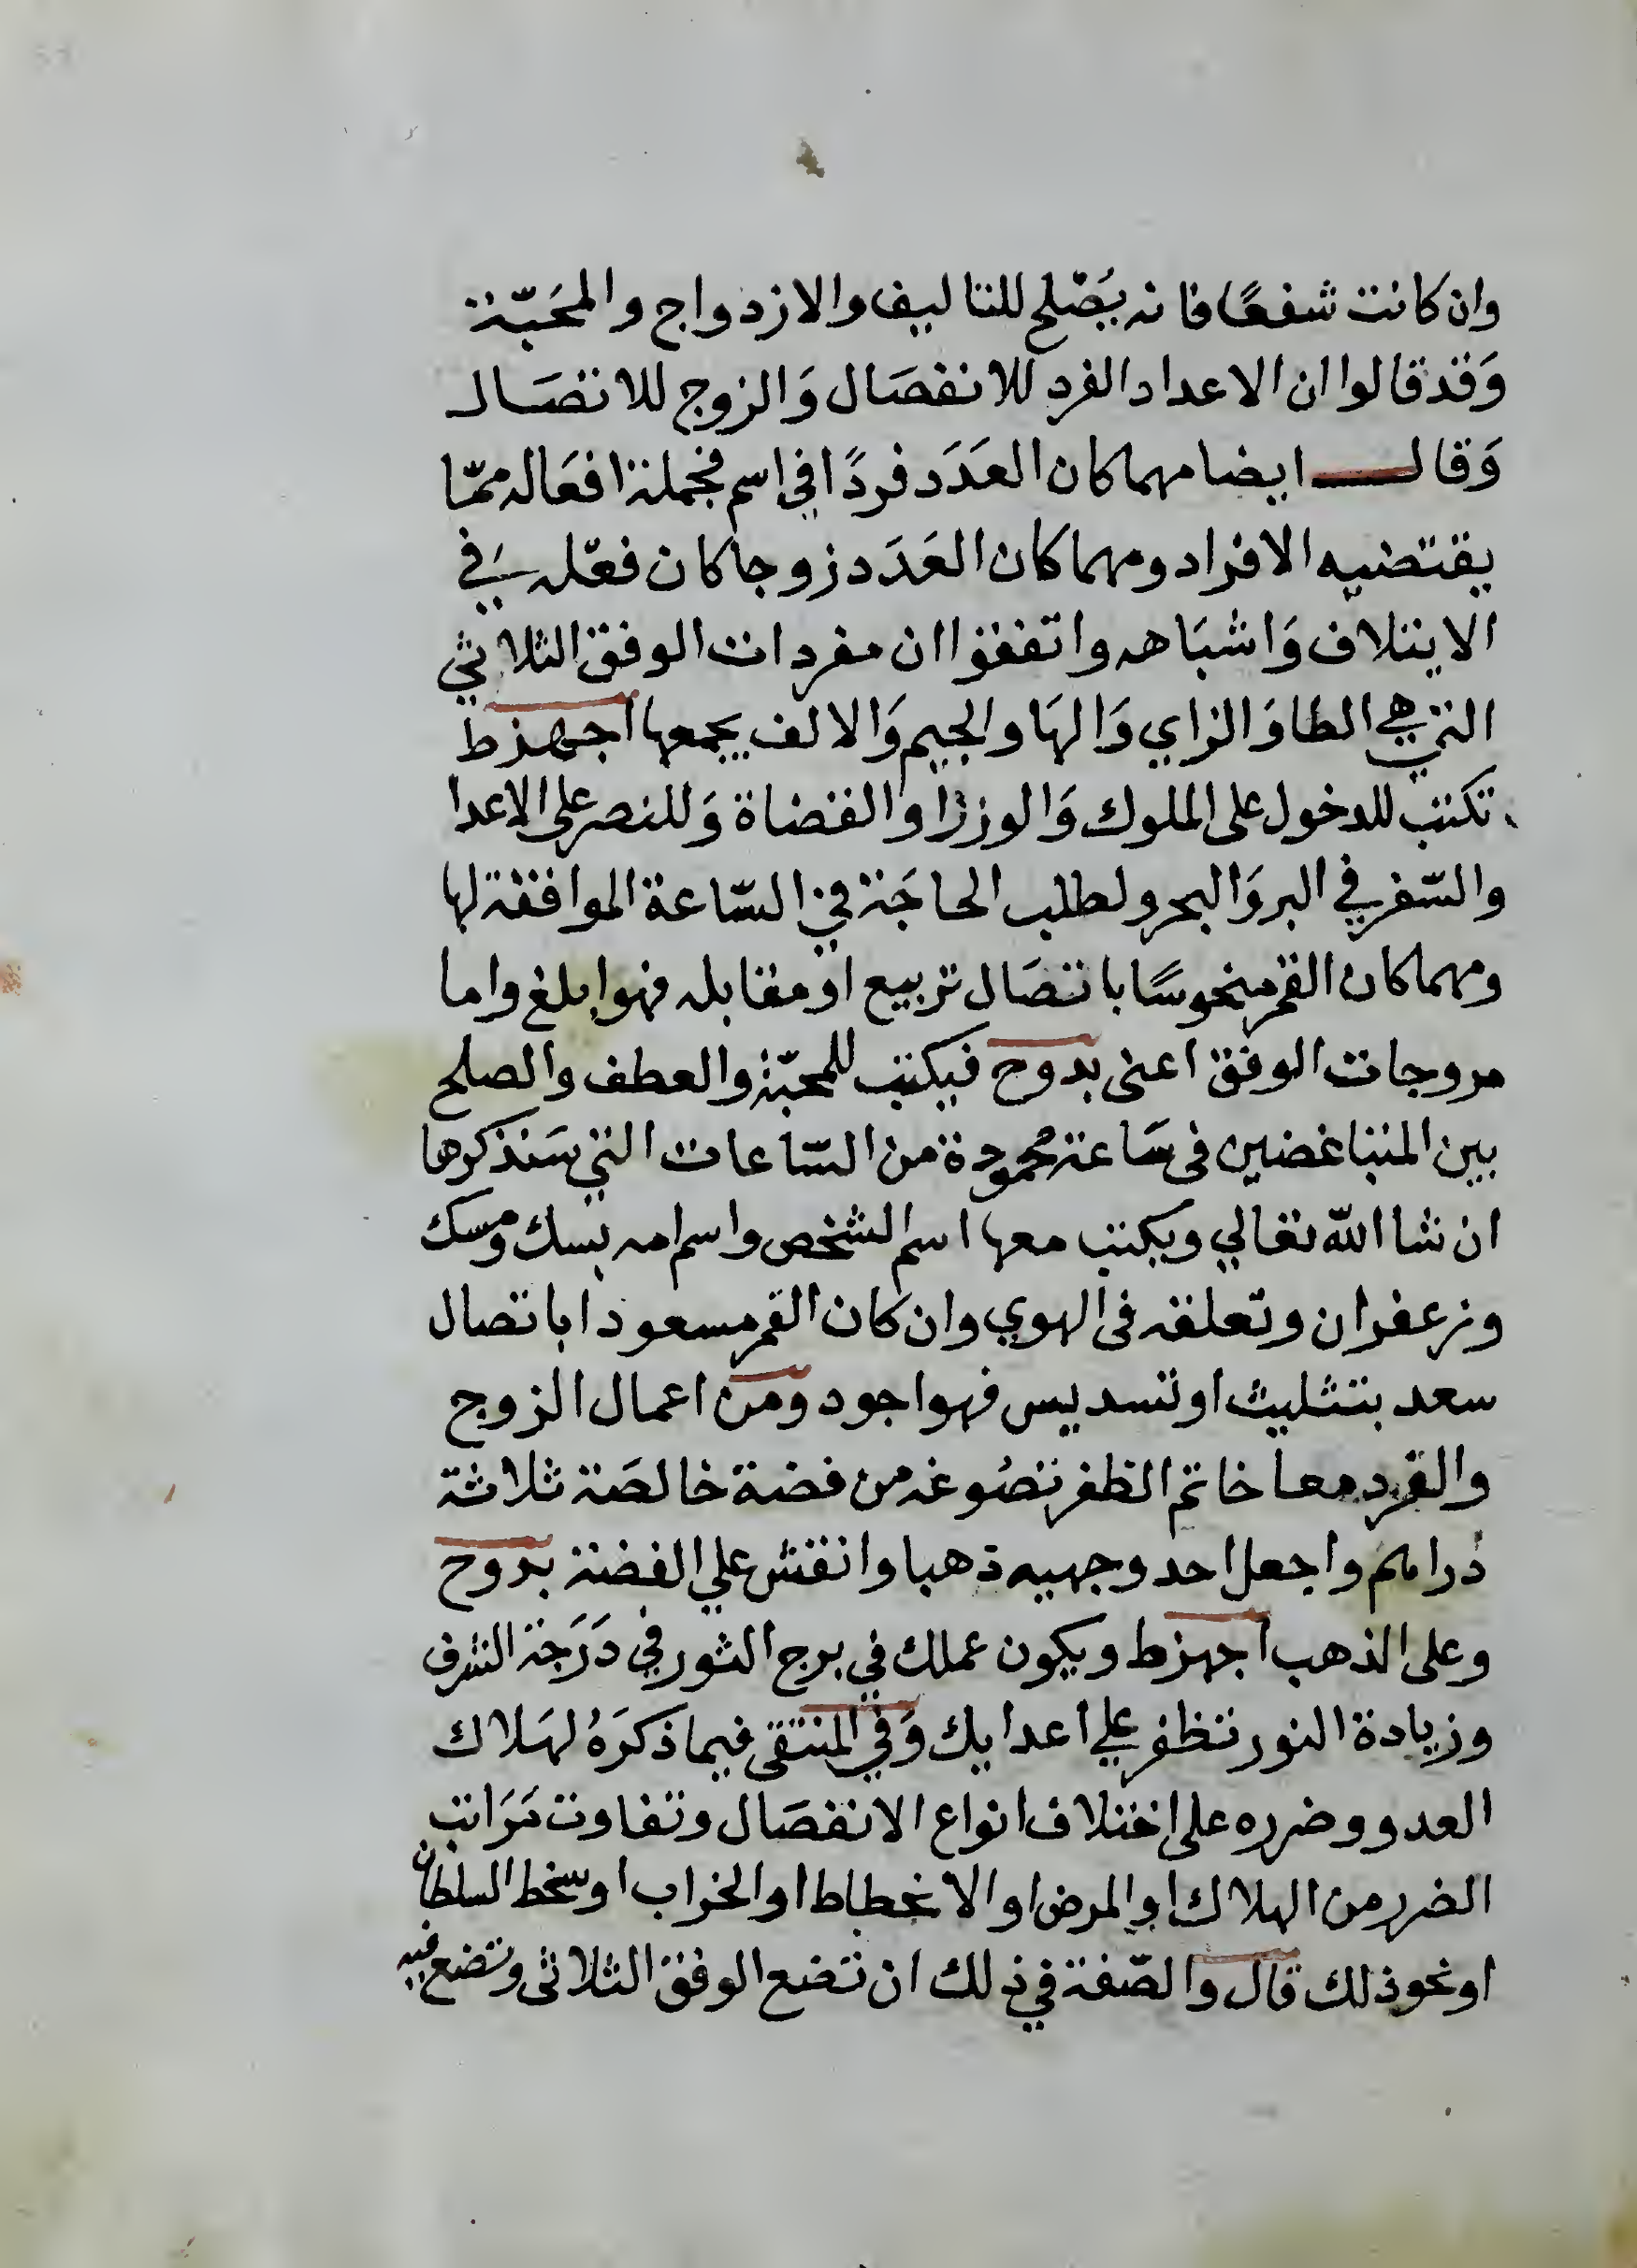 وان كانت شفعًا فانه يَصْلح للتاليف والازدواج والمحَبّة
وَقد قالوا ان الاعداد الفرد للانفصَال وَالزوج للاتصَال
وَقال ايضا مهما كان العَدَد فردًا في اسم فجملة افعَاله ممّا
يقتضيه الافراد ومهما كان العَدَد زوجا كان فعّله في
الايتلاف وَاشبَاهه واتفقوا ان مفردات الوفق الثلاثي
التي هي الطا وَالزاي وَالهَا والجيم وَالالف يجمعها اجهزط
تكتب للدخول على الملوك وَالوزرا والقضاة وَللنصر على الاعدا
والسّفر في البر وَالبحر ولطلب الحاجَة في السّاعة الموافقة لها
ومهما كان القمر منحوسًا باتصَال تربيع او مقابله فهو ابلغ واما
مزوجات الوفق اعنى بدوح فيكتب للمحبّة والعطف والصلح
بين المتباغضين فى سَاعة محمُودة من السّاعات التي سَنذكرها
ان شا الله تعالي ويكتب معها اسم الشخص واسم امه بسك ومسك
وزعفران وتعلقه فى الهوي وان كان القمر مسعودا باتصال
سعد بتثليث او تسديس فهو اجود ومن اعمال الزوج
والفرد معا خاتم الظفر تصُوغه من فضة خالصَة ثلاثة
دراهم واجعل احد وجهيه ذهبا وانقش علي الفضة بدوح
وعلى الذهب اجهزط ويكون عملك في برج الثور في دَرَجة الشرف
وزيادة النور تظفر علي اعدايك وَفي المنتقى فيما ذكرَهُ لهَلاك
العدو وضرره على اختلاف انواع الانفصَال وتفاوت مَرَاتب
الضرر من الهلاك او المرض او الانحطاط او الخراب او سخط السلطان
او نحو ذلك قال والصّفة في ذلك ان تضع الوفق الثلاثى وتضع فيه